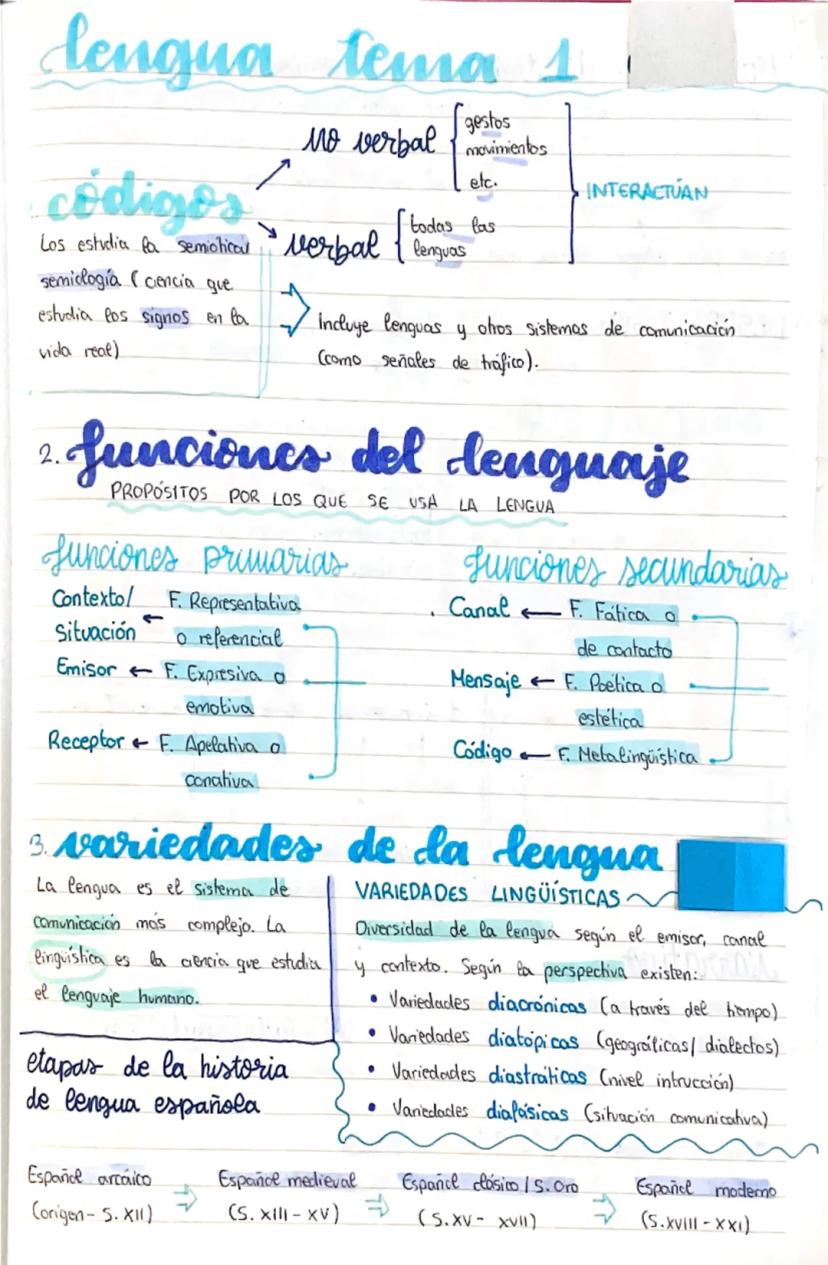 lengua tema 1
códigos
no verbal
gestos
movimientos
etc.
verbal
todas las
lenguas
INTERACTÚAN
Los estudia la semiótica/
semiología (ciencia que
estudia los signos en la
vida real)
Incluye lenguas y otros sistemas de comunicación
(como señales de tráfico).
2. funciones del lenguaje
PROPÓSITOS POR LOS QUE SE USA LA LENGUA
funciones primarias
Contexto/ F. Representativa
Situación ← o referencial
Emisor ← F. Expresiva o
emotiva
Receptor ← F. Apelativa o
conativa
funciones secundarias
Canal ← F. Fática o
de contacto
Mensaje ← F. Poética o
estética
Código ← F. Metalingüística
3. variedades de la lengua
La lengua es el sistema de
comunicación más complejo. La
lingüística es la ciencia que estudia
el lenguaje humano.
VARIEDADES LINGÜÍSTICAS
Diversidad de la lengua según el emisor, canal
y contexto. Según la perspectiva existen:
• Variedades diacrónicas (a través del tiempo)
• Variedades diatópicas (geográficas/ dialectos)
• Variedades diastráticas (nivel intrucción)
• Variedades diafásicas (situación comunicativa)
etapas de la historia
de lengua española
Español arcáico
(origen - S. XII)
Español medieval
(S. XIII - XV)
Español clásico / S. Oro
(S. XV - XVII)
Español moderno
(S. XVIII - XXI)